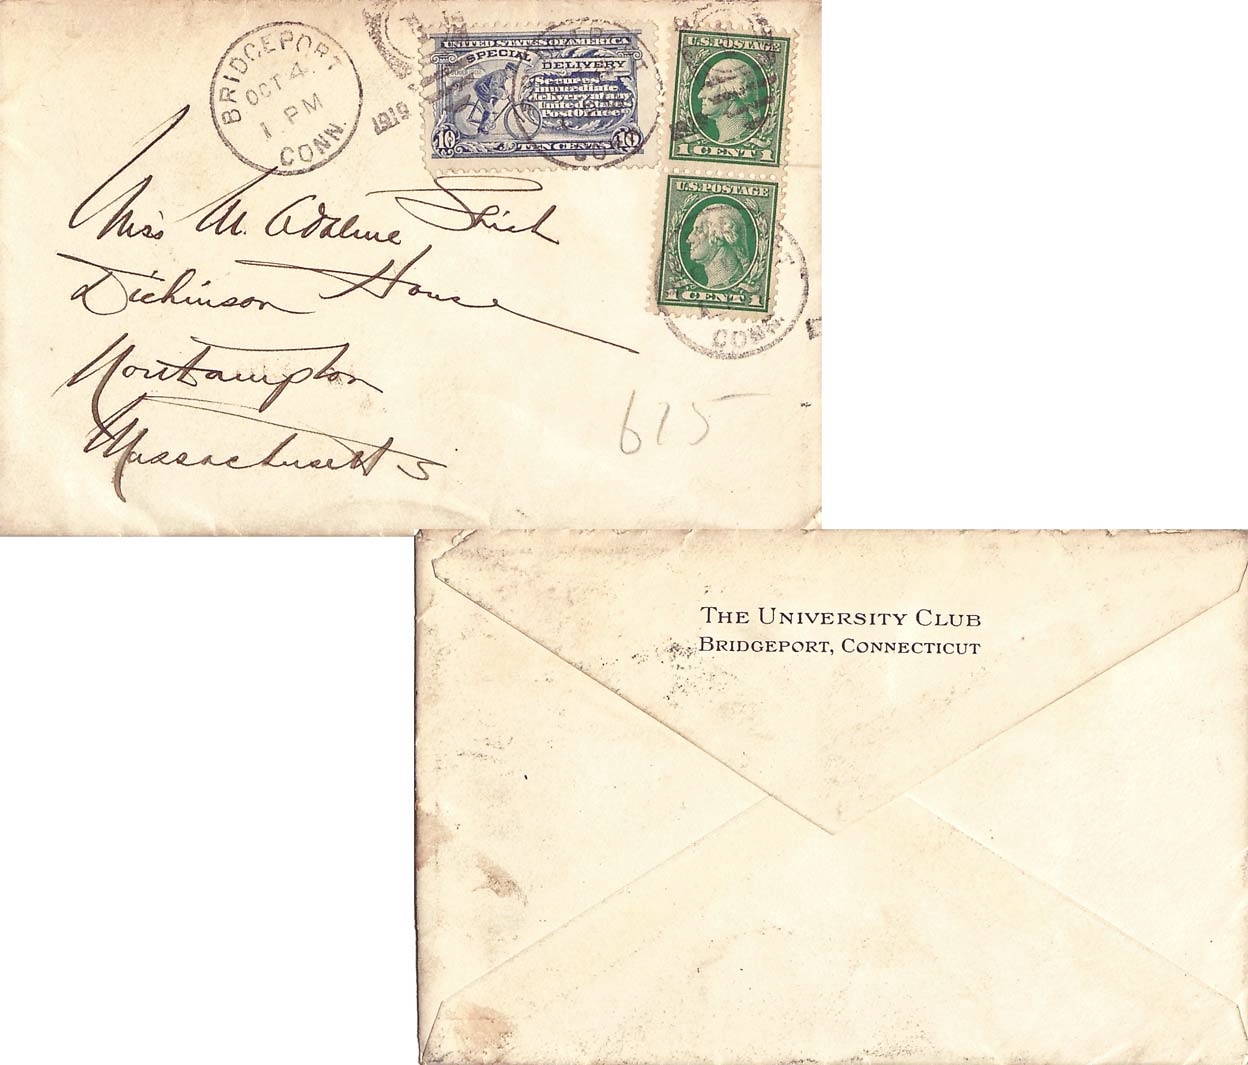 BRIDGEPORT
OCT 4.
1 PM
CONN.
1919
UNITED STATES OF AMERICA
SPECIAL DELIVERY
Secures
immediate
delivery of any
United States
Post Office
10 TEN CENTS 10
CONN.
U.S. POSTAGE
1 CENT 1
U.S. POSTAGE
1 CENT 1
CONN.
Miss M. Adaline
Dickinson House
Northampton
Massachusetts
675
THE UNIVERSITY CLUB
BRIDGEPORT, CONNECTICUT